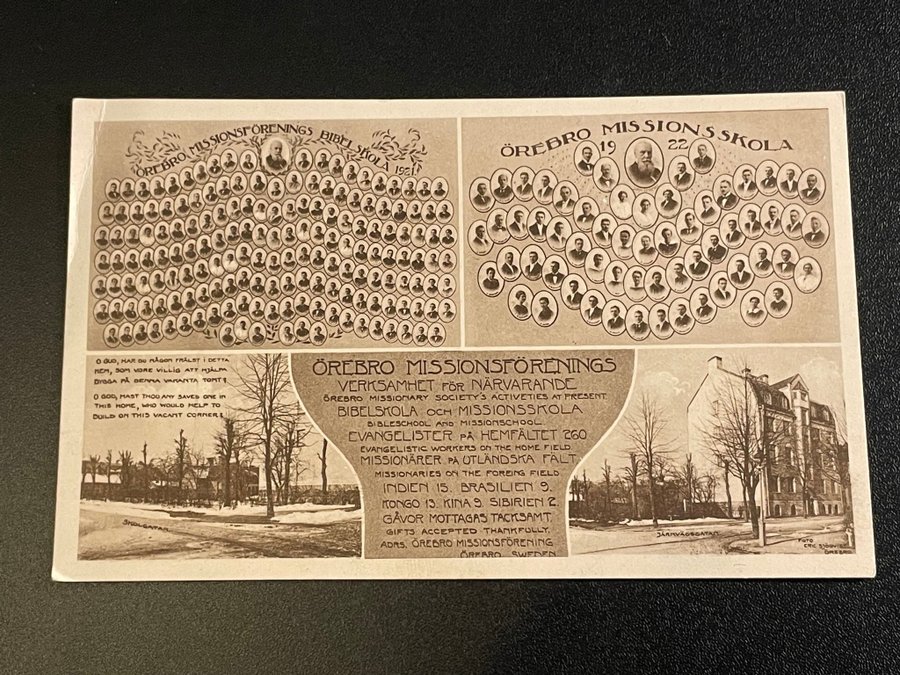 ÖREBRO MISSIONSFÖRENINGS BIBELSKOLA 1921
ÖREBRO MISSIONSSKOLA
1922
O GUD, HAR DU NÅGON FRÄLST I DETTA
HEM, SOM VORE VILLIG ATT HJÄLPA
BYGGA PÅ DENNA VAKANTA TOMT?
O GOD, HAST THOU ANY SAVED ONE IN
THIS HOME, WHO WOULD HELP TO
BUILD ON THIS VACANT CORNER?
SKOLGATAN
ÖREBRO MISSIONSFÖRENINGS
VERKSAMHET FÖR NÄRVARANDE
ÖREBRO MISSIONARY SOCIETY'S ACTIVETIES AT PRESENT
BIBELSKOLA OCH MISSIONSSKOLA
BIBLESCHOOL AND MISSIONSCHOOL
EVANGELISTER PÅ HEMFÄLTET 260
EVANGELISTIC WORKERS ON THE HOME FIELD
MISSIONÄRER PÅ UTLÄNDSKA FÄLT
MISSIONARIES ON THE FOREING FIELD
INDIEN 15. BRASILIEN 9.
KONGO 13. KINA 9. SIBIRIEN 2.
GÅVOR MOTTAGAS TACKSAMT.
GIFTS ACCEPTED THANKFULLY.
ADRS. ÖREBRO MISSIONSFÖRENING
ÖREBRO, SWEDEN
JÄRNVÄGSGATAN
FOTO
ERIC
ÖREBRO